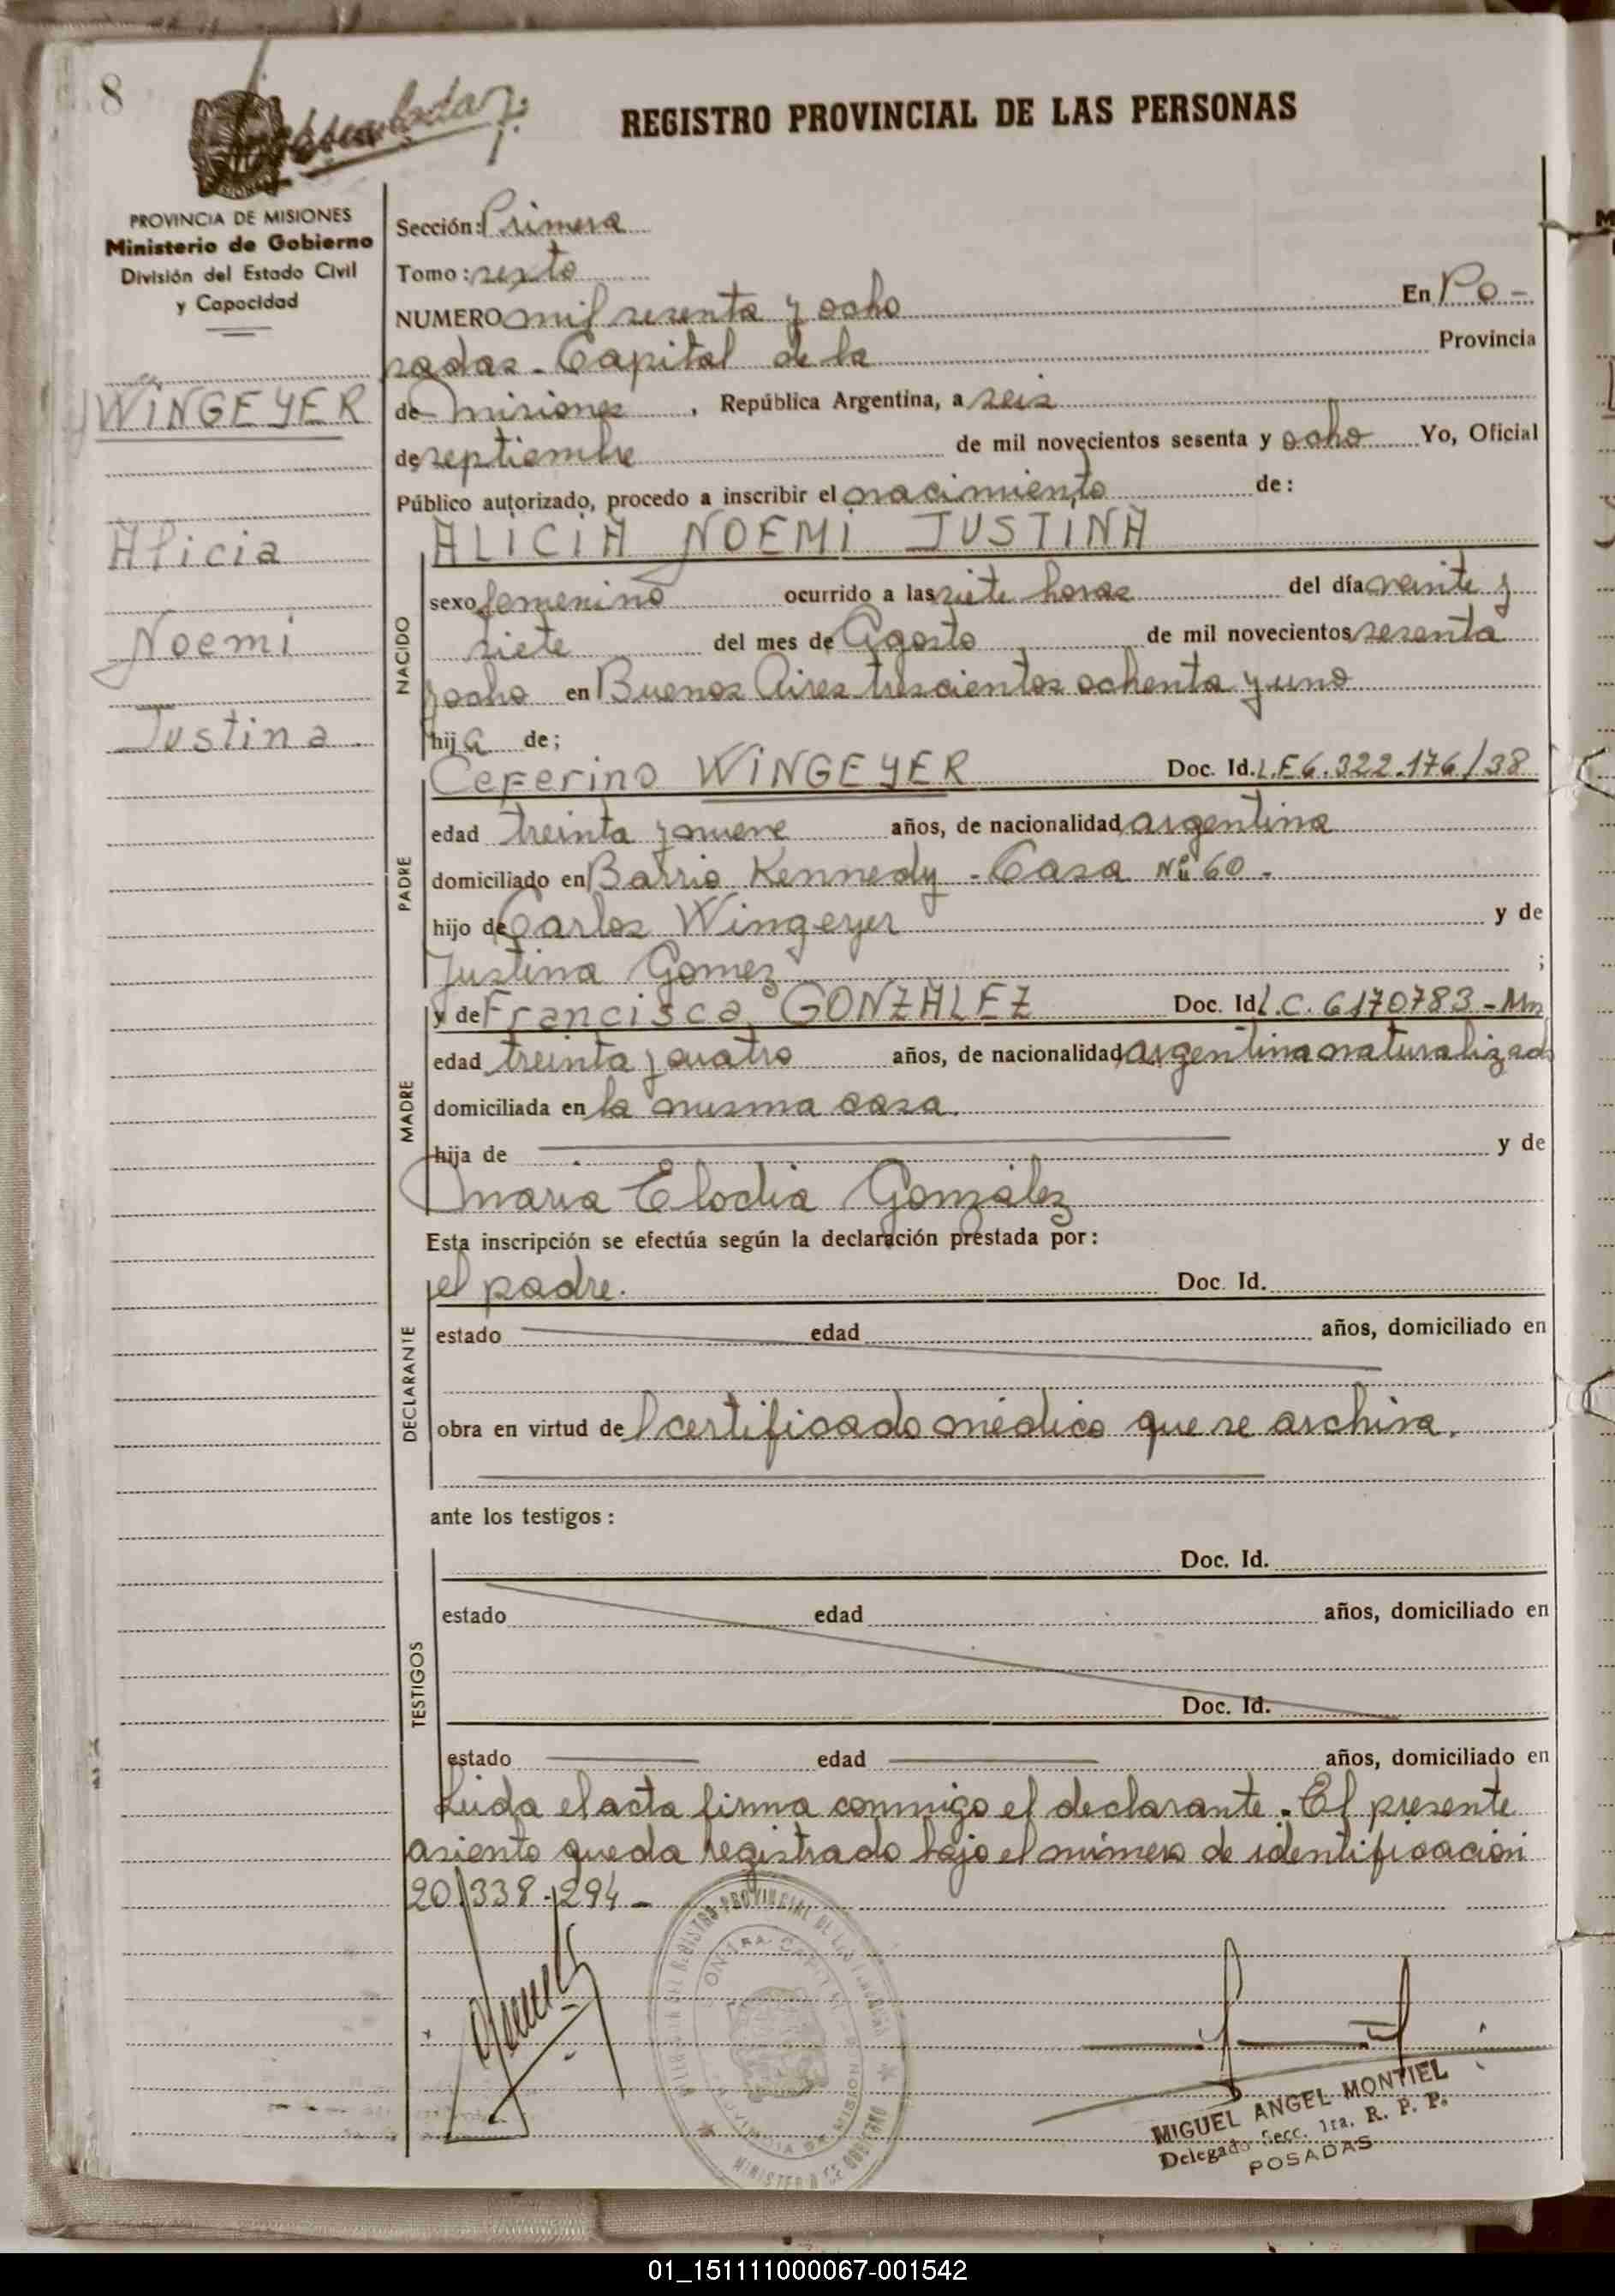 8
REGISTRO PROVINCIAL DE LAS PERSONAS
PROVINCIA DE MISIONES
Ministerio de Gobierno
División del Estado Civil
y Capacidad
WiNGEYER
Alicia
Noemi
Justina.
Sección: Primera
Tomo: sexto
NUMERO mil sesenta y ocho En Po-
sadas. Capital de la Provincia
de Misiones, República Argentina, a seis
de septiembre de mil novecientos sesenta y ocho Yo, Oficial
Público autorizado, procedo a inscribir el nacimiento de:
ALiCiA NOEMi JUSTINA
NACIDO
sexo femenino ocurrido a las siete horas del día veinte y
siete del mes de Agosto de mil novecientos sesenta
y ocho en Buenos Aires trescientos ochenta y uno
hija de;
PADRE
Ceferino WiNGEYER Doc. Id. L.E 6.322.176/38
edad treinta y nueve años, de nacionalidad argentina
domiciliado en Barrio Kennedy - Casa Nº 60.
hijo de Carlos Wingeyer y de
Justina Gomez ;
MADRE
y de Francisca GONZALEZ Doc. Id L.C. 6170783-Mn
edad treinta y cuatro años, de nacionalidad argentina naturalizad
domiciliada en la misma casa.
hija de y de
Maria Elodia González
Esta inscripción se efectúa según la declaración prestada por:
DECLARANTE
el padre. Doc. Id.
estado edad años, domiciliado en
obra en virtud de l certificado médico que se archiva.
ante los testigos:
TESTIGOS
Doc. Id.
estado edad años, domiciliado en
Doc. Id.
estado edad años, domiciliado en
Leida el acta firma conmigo el declarante. El presente
asiento queda registrado bajo el número de identificación
20.338.294-
MIGUEL ANGEL MONTIEL
Delegado Secc. 1ra. R. P. P.
POSADAS
01_151111000067-001542